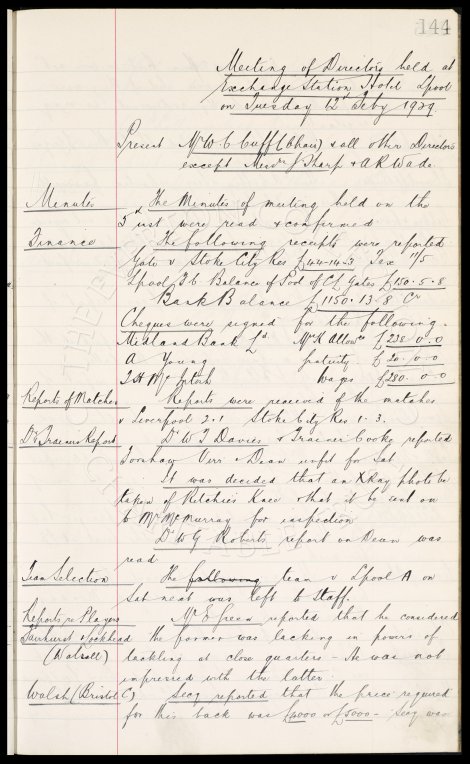 144
Meeting of Directors held at
Exchange Station Hotel Lpool
on Tuesday 12th Feby 1929
Present Mr W. C. Cuff (Chair) & all other Directors
except Messrs J Sharp & A R Wade.
Minutes The Minutes of meeting held on the
5th inst were read & confirmed
Finance The following receipts were reported
Gate v Stoke City Res £44-14-3 Sax 11/5
Lpool F C Balance of Pool of Cp Gates £150.5.8
Bank Balance £1150.13.8 Cr
Cheques were signed for the following.
Midland Bank Ld. Mr K Allowce £238.0.0
A Young gratuity £20.0.0
T. H. McIntosh Wages £280.0.0
Reports of Matches Reports were received of the matches
v Liverpool 2.1 Stoke City Res 1-3.
Dr & Trainers Report Dr W T Davies & Trainer Cooke reported
Virr & Dean unfit for Sat
It was decided that an X Ray photo be
taken of Ritchie's Knee & that it be sent on
to Mr McMurray for inspection
Dr W G Roberts report on Dean was
read
Team Selection The following team v Lpool A on
Sat next was left to Staff.
Reports re Players Mr E Green reported that he considered
Fairhurst & Lockhead the former was lacking in powers of
(Walsall) tackling at close quarters - He was not
impressed with the latter
Walsh (Bristol C). Secy reported that the price required
for this back was £4000 or £5000 - Secy was